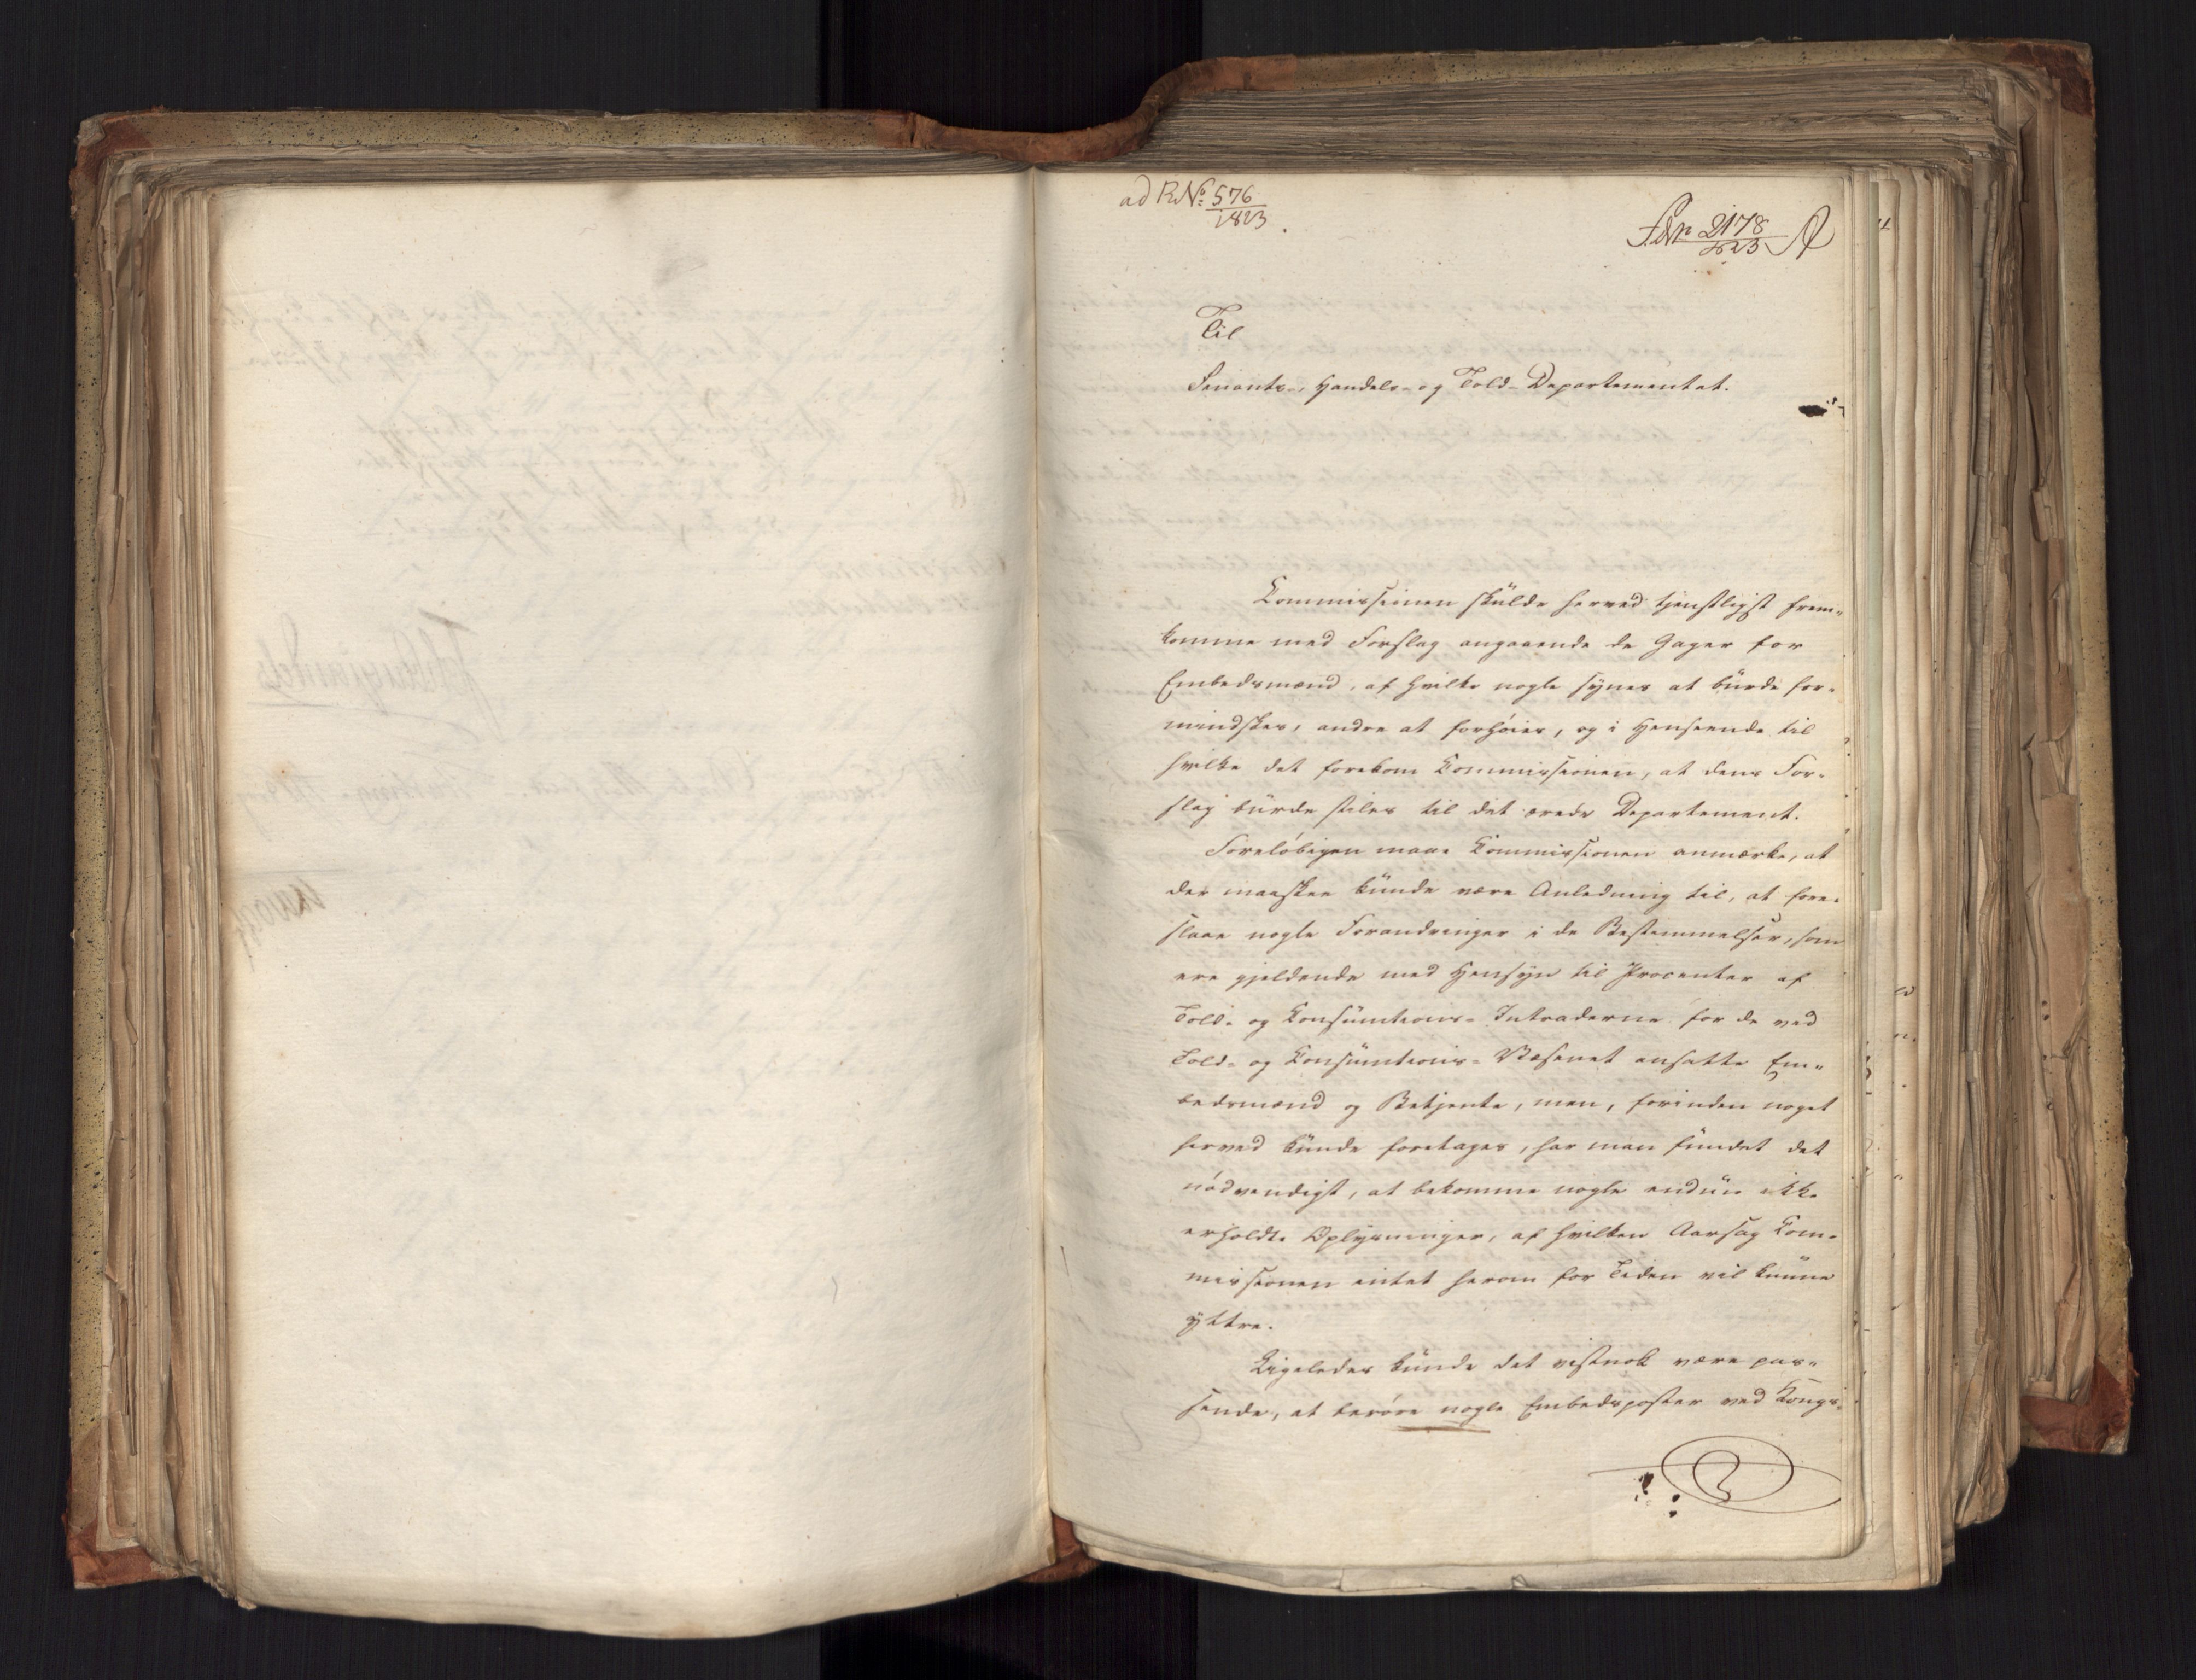 ad R.No. 576/1823.
2178/1823 A
Til
Finants-, Handels- og Told-Departementet.
Commissionen skulde herved tjenstligst frem-
komme med Forslag angaaende de Gager for
Embedsmænd, af hvilke nogle synes at burde for-
mindskes, andre at forhøies, og i Henseende til
hvilke det forekom Commissionen, at dens For-
slag burde stiles til det ærede Departement.
Foreløbigen maae Commissionen anmærke, at
der maaskee kunde være Anledning til, at fore-
slaae nogle Forandringer i de Bestemmelser, som
ere gjeldende med Hensyn til Procenter af
Told- og Consumtions-Intraderne for de ved
Told- og Consumtions-Væsenet ansatte Em-
bedsmænd og Betjente, men, forinden noget
herved kunde foretages, har man fundet det
nødvendigt, at bekomme nogle endnu ikke
erholdte Oplysninger, af hvilken Aarsag Com-
missionen intet herom for Tiden vil kunne
yttre.
Ligeledes kunde det vistnok være pas-
sende, at berøre nogle Embedsposter ved Kongs-